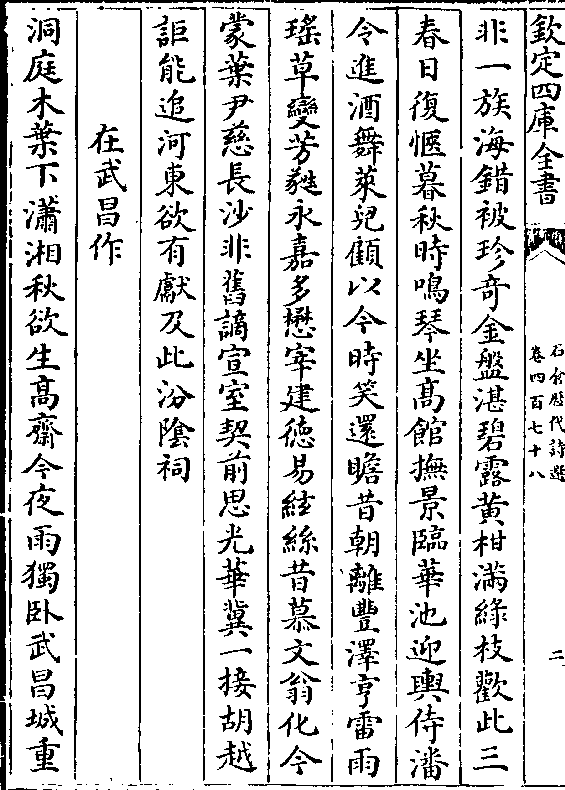 欽定四庫全書
石倉歷代詩選
卷四百七十八
二
非一族海錯被珍奇金盤湛碧露黃柑滿綠枝歡此三
春日復愜暮秋時鳴琴坐髙館撫景臨華池迎輿侍潘
令進酒舞萊兒顧以今時笑還瞻昔朝離豐澤亨雷雨
瑤草變芳蕤永嘉多懋宰建徳易絃絲昔慕文翁化今
蒙葉尹慈長沙非舊謫宣室契前思光華冀一接胡越
詎能追河東欲有獻及此汾隂祠
在武昌作
洞庭木葉下瀟湘秋欲生髙齋今夜雨獨卧武昌城重